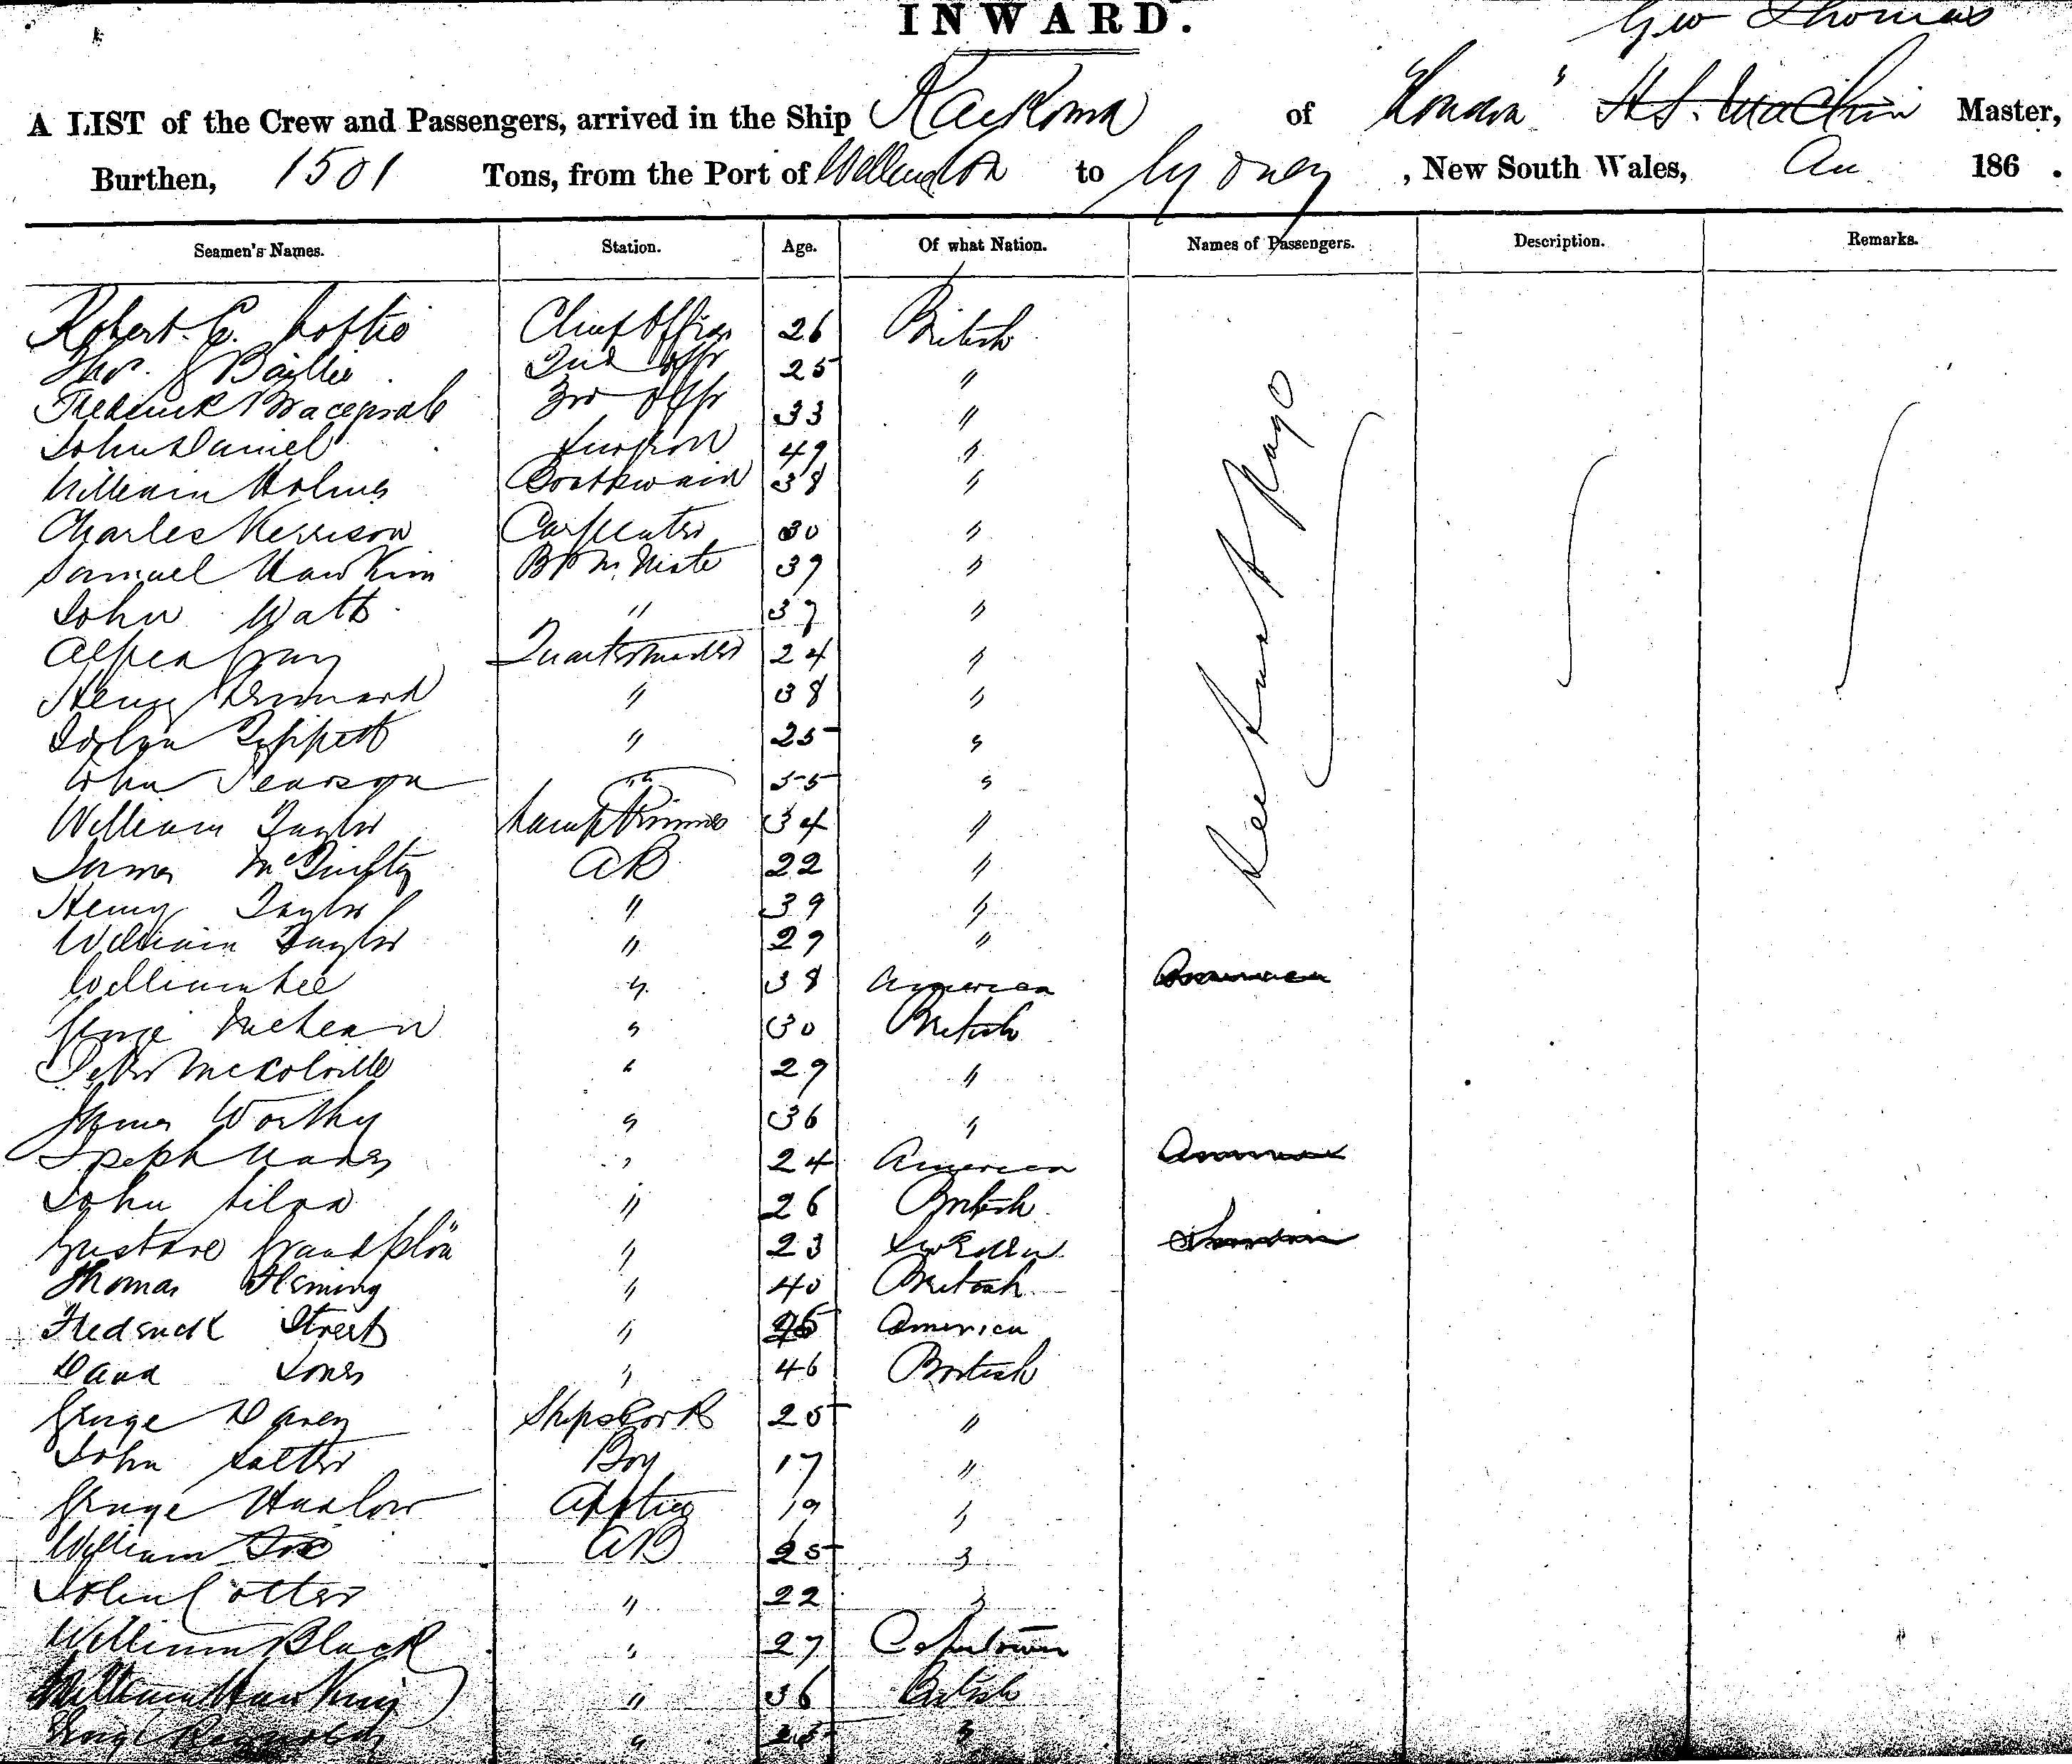 INWARD.
Geo Thomas
A LIST of the Crew and Passengers, arrived in the Ship Kaikoura of "London" H S. Machin Master,
Burthen, 1501 Tons, from the Port of Wellington to Sydney, New South Wales, 186 .
Seamen's Names. Station. Age. Of what Nation. Names of Passengers. Description. Remarks.
Robert C. Loftie Chief Officer 26 British
Thos. Baillie 2nd Offr 25 "
Frederick 3rd Offr 33 "
John Daniel Surgeon 49 "
William Holmes Boatswain 38 "
Charles Kerrison Carpenter 30 "
Samuel Hawkins Mate 39 "
John Watts " 37 "
Alfred Gray Quartermaster 24 "
Henry " 38 "
Tippett " 25 "
John Pearson " 35 "
William Taylor Lamp Trimmer 34 "
James AB 22 "
Henry Taylor " 39 "
William Taylor " 29 "
William Lee " 38 American
George McLean " 30 British
Peter " 29 "
James Worthy " 36 "
Joseph " 24 American
John Silva " 26 British
Gustave " 23 Sweden
Thomas Fleming " 40 British
Fredrick Street " America
David Jones " 46 British
George Davey Ships Cook 25 "
John Salter Boy 17 "
George Harlow Apptice 19 "
William AB 25 "
John Cotter " 22 "
William Black " 27 Capetown
William Hawkins " 36 British
George Reynolds " 25 "
See last page